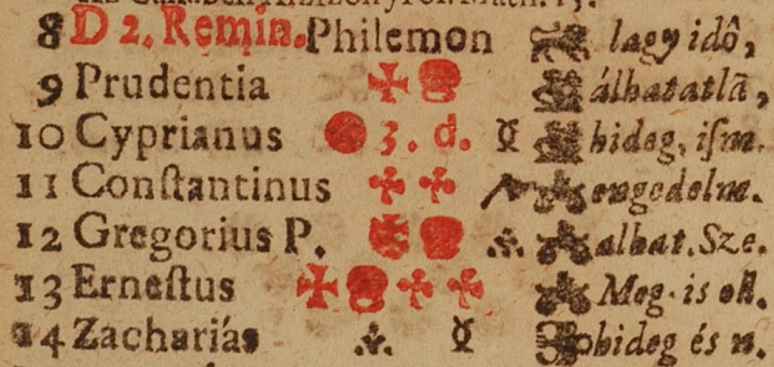 8 D 2. Remin. Philemon lagy idô,
9 Prudentia álhatatlã,
10 Cyprianus 3. d. hideg, iſm.
11 Conſtantinus engedelm.
12 Gregorius P. alhat. Sze.
13 Erneſtus Meg is
14 Zachariás hideg és n.